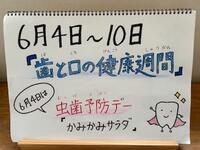 6月4日～10日
「歯と口の健康週間」
6月4日は
虫歯予防デー
「かみかみサラダ」